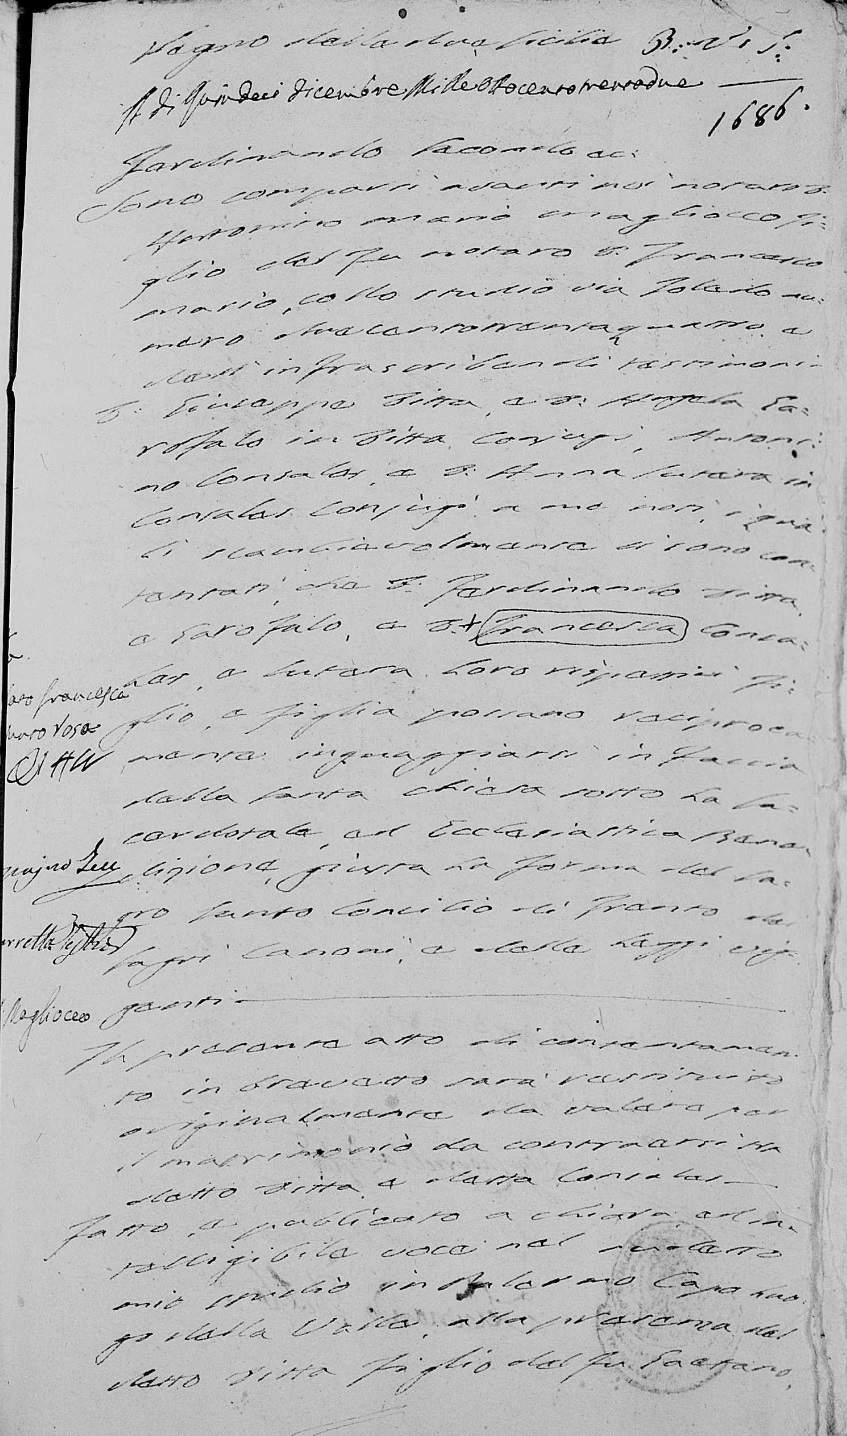 Regno delle due Sicilie
A di Quindeci Dicembre Mille Ottocento trentadue
1686.
Ferdinando Secondo ec:
Sono comparsi avanti noi notaro D.
Antonino Maria Magliocco fi=
glio del fu notaro D. Francesco
Maria, collo studio via Toledo nu:
mero duecentotrentaquattro, e
delli infrascrivendi testimonii
D. Giuseppe Ditta, e D. Angela Ga=
rofalo in Ditta Conjugi, Antoni:
no Consales, e D. Anna Lutera in
Consales Conjugi a me noti, i qua
li scambievolmente si sono con
tentati, che D. Ferdinando Ditta,
e Garofalo, e D. Francesca Consa=
les, e Lutera loro rispettivi fi=
glio, e figlia possano reciproca
mente inguaggiarsi in faccia
della Santa Chiesa sotto la Sa=
cerdotale, ed Ecclesiastica Bene
dizione, giusta la forma del Sa=
gro Santo Concilio di Trento, dei
Sagri Canoni, e delle Leggi vi
genti
Il presente atto di contentamen
to in brevetto sarà restituito
originalmente da valere per
il matrimonio da contraersi tra
detto Ditta, e detta Consales
Fatto, e publicato a chiara, ed in
telligibile voce nel sudetto
mio studio in Palermo Capo luo
go della Valle, alla presenza del
detto Ditta figlio del fu Gaetano,
francesca
Rosa
Magliocco